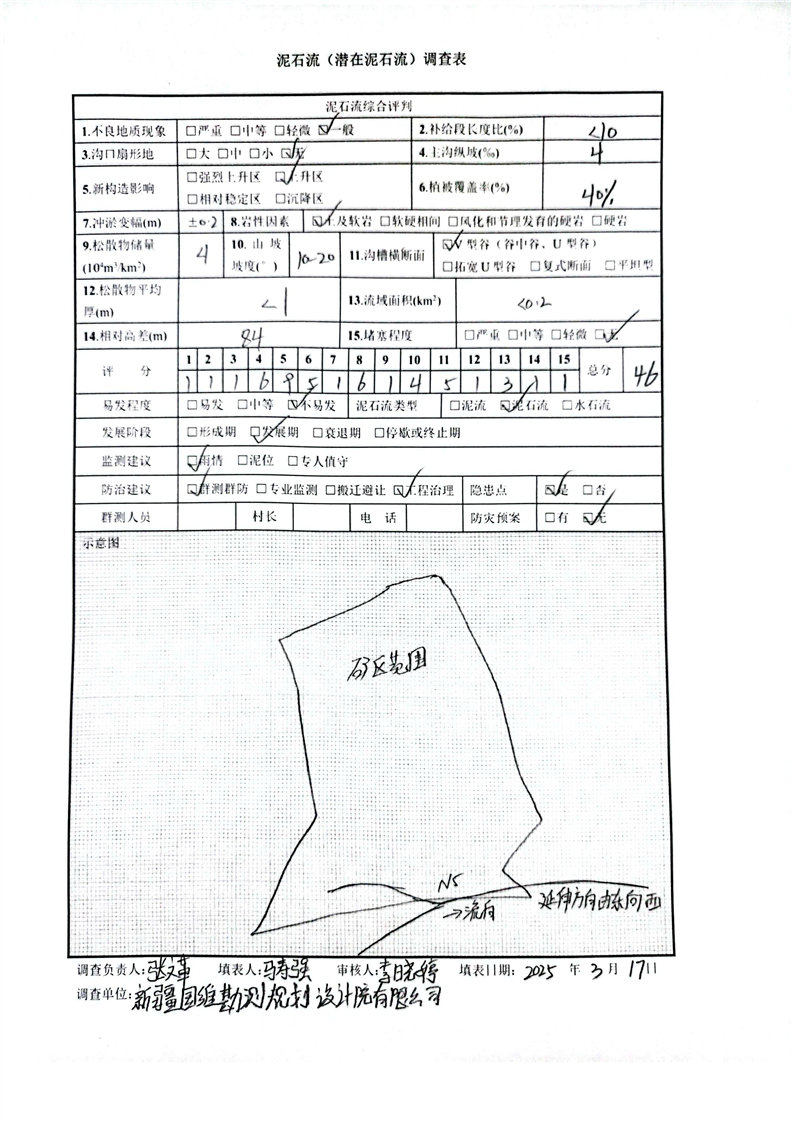 泥石流（潜在泥石流）调查表
泥石流综合评判
1.不良地质现象 □严重 □中等 □轻微 ☑一般 2.补给段长度比(%) <10
3.沟口扇形地 □大 □中 □小 ☑无 4.主沟纵坡(‰) 4
5.新构造影响 □强烈上升区 ☑上升区 □相对稳定区 □沉降区 6.植被覆盖率(%) 40%
7.冲淤变幅(m) ±0.2 8.岩性因素 ☑土及软岩 □软硬相间 □风化和节理发育的硬岩 □硬岩
9.松散物储量(10⁴m³/km²) 4 10.山坡坡度(°) 10-20 11.沟槽横断面 ☑V型谷（谷中谷、U型谷） □拓宽U型谷 □复式断面 □平坦型
12.松散物平均厚(m) <1 13.流域面积(km²) <0.2
14.相对高差(m) 84 15.堵塞程度 □严重 □中等 □轻微 ☑无
评 分 1 2 3 4 5 6 7 8 9 10 11 12 13 14 15 总分 46
1 1 1 6 9 5 1 6 1 4 5 1 3 1 1
易发程度 □易发 □中等 ☑不易发 泥石流类型 □泥流 ☑泥石流 □水石流
发展阶段 □形成期 ☑发展期 □衰退期 □停歇或终止期
监测建议 ☑雨情 □泥位 □专人值守
防治建议 ☑群测群防 □专业监测 □搬迁避让 ☑工程治理 隐患点 ☑是 □否
群测人员 村长 电 话 防灾预案 □有 ☑无
示意图
矿区范围
N5
→流向
延伸方向由东向西
调查负责人:张文革 填表人:马寿强 审核人:李晓婷 填表日期: 2025 年 3 月 17日
调查单位:新疆国维勘测规划设计院有限公司